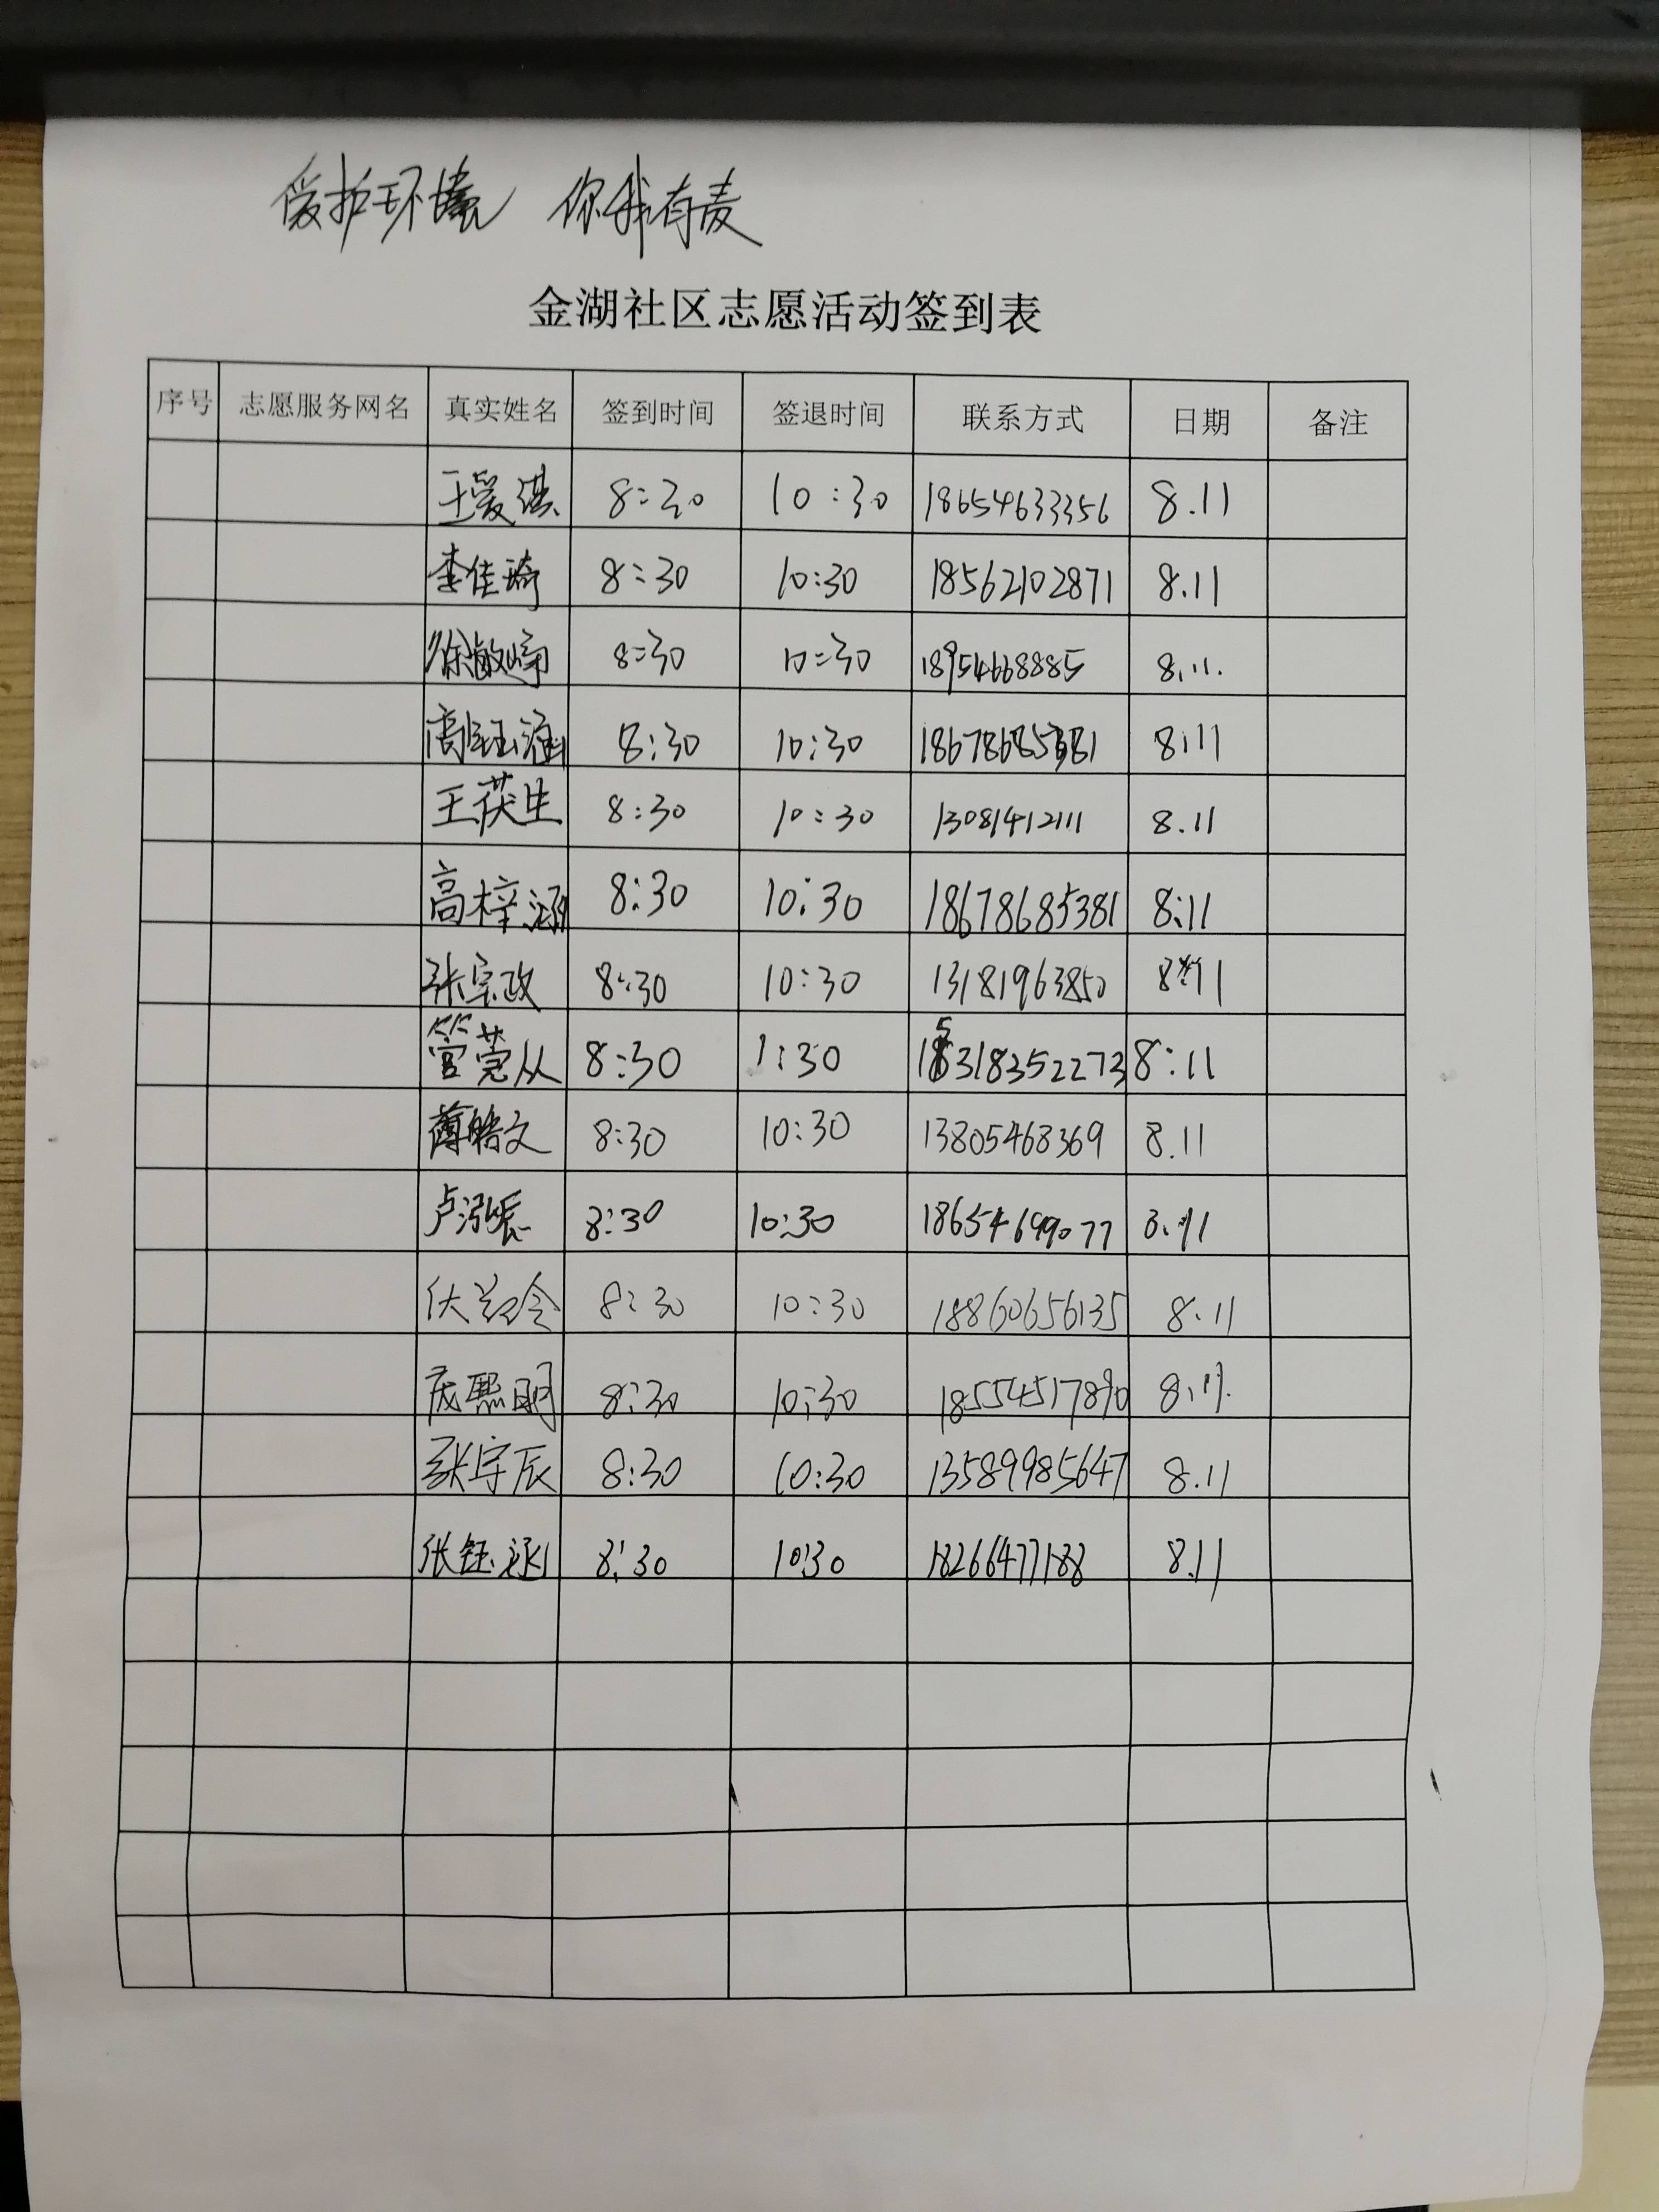 爱护环境 你我有责
金湖社区志愿活动签到表
序号 志愿服务网名 真实姓名 签到时间 签退时间 联系方式 日期 备注
王爱淇 8:30 10:30 18654633356 8.11
李佳琦 8:30 10:30 18562102871 8.11
徐敏崎 8:30 10:30 18954668885 8.11.
高钰涵 8:30 10:30 18678685381 8:11
王茯生 8:30 10:30 13081412111 8.11
高梓涵 8:30 10:30 18678685381 8:11
张宗政 8:30 10:30 13181963850 8:11
管莞从 8:30 1:30 15318352273 8:11
薄皓文 8:30 10:30 13805468369 8.11
卢泓辰 8:30 10:30 18654699077 8.11
8:30 10:30 18860656135 8.11
熙明 8:30 10:30 18554517890 8.11.
张宇辰 8:30 10:30 13589985647 8.11
张钰涵 8:30 10:30 18266477188 8.11